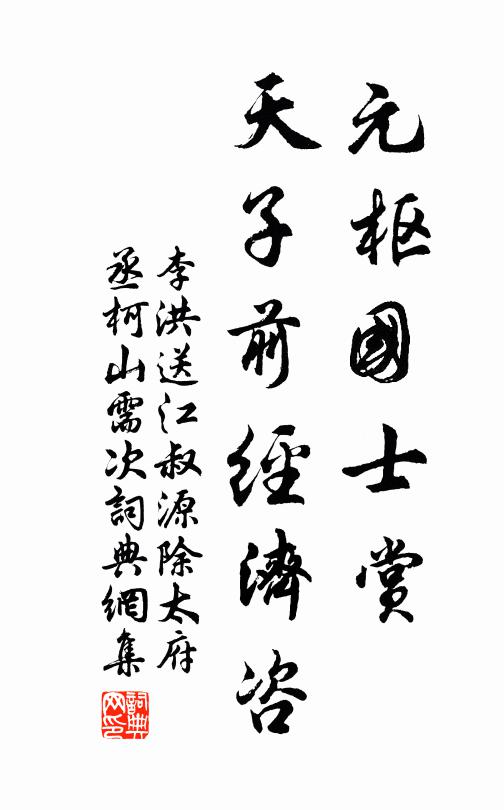 元枢國士賞
天子前經濟咨
李洪送江叔源除太府
丞柯山需次詞典網集
詞典
网印